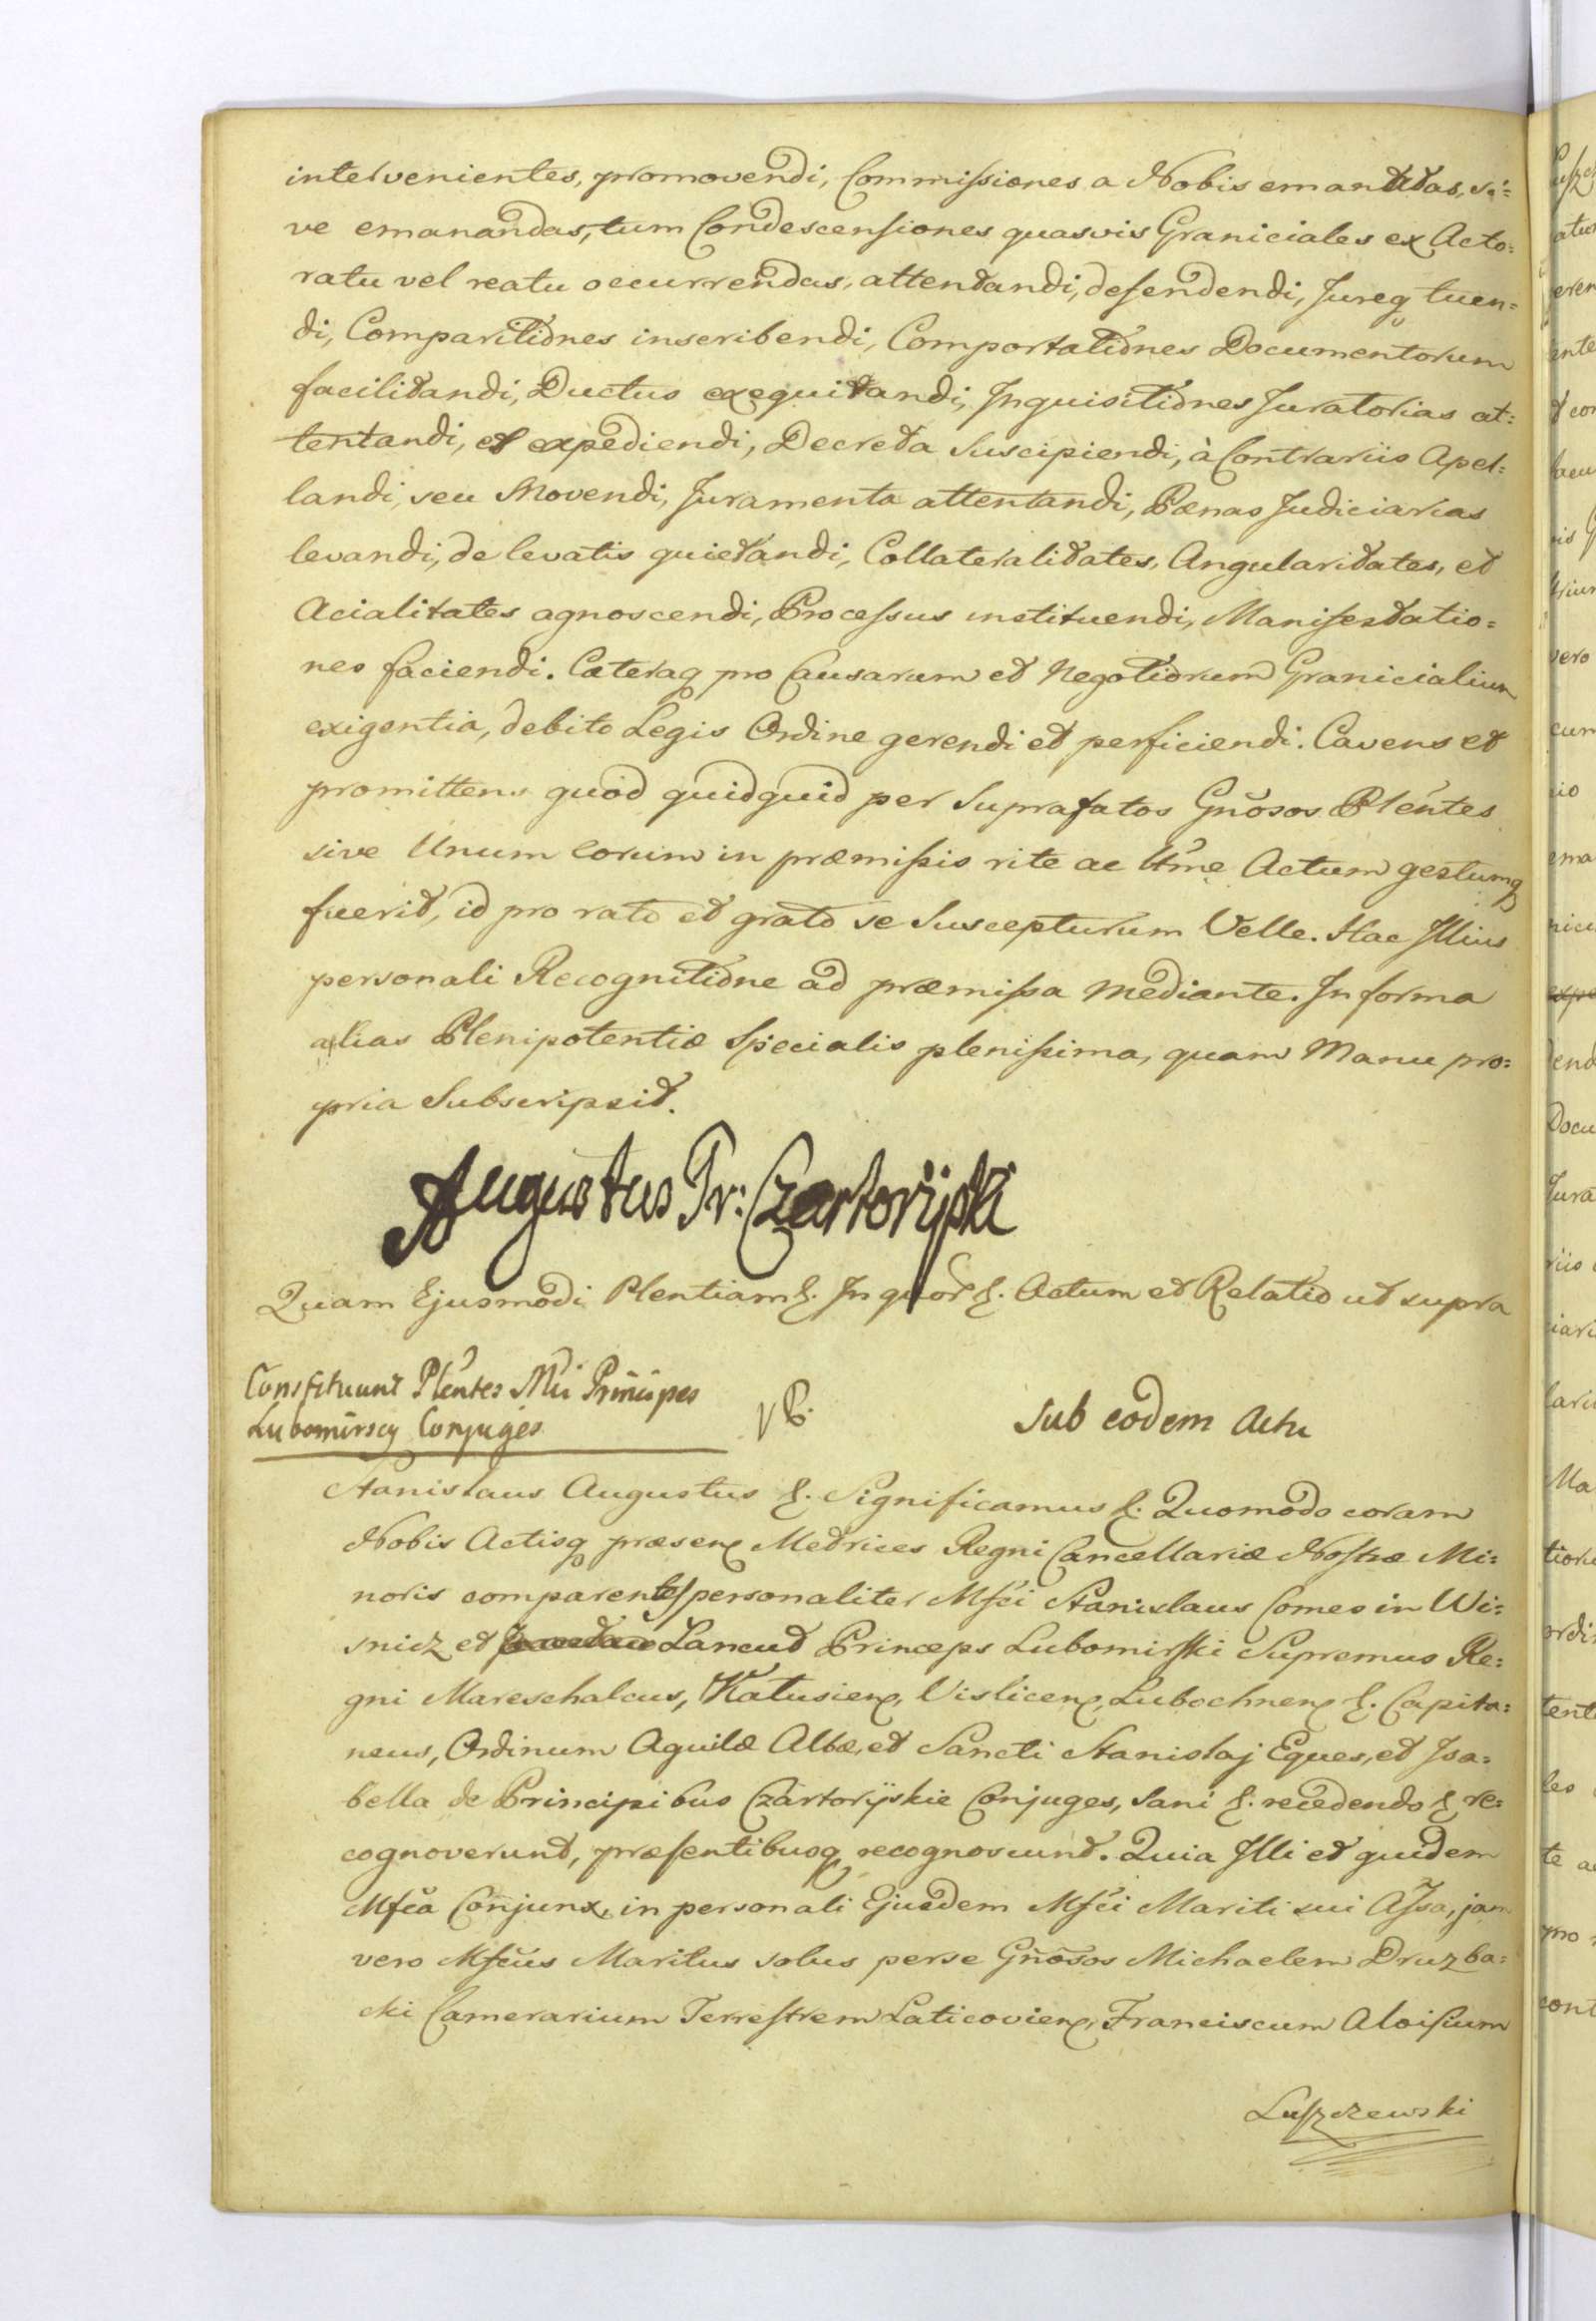 intervenientes, promovendi, Commissiones a Nobis emanatas, si=
ve emanandas, tum Condescensiones quasvis Graniciales ex Acto=
ratu vel reatu occurrendas, attentandi, defendendi, Jureq tuen=
di, Comparitiones inscribendi, Comportationes Documentorum
facilitandi, Ductus exequitandi, Inquisitiones Juratorias at=
tentandi, et expediendi, Decreta Suscipiendi, à Contrariis Apel=
landi, seu Movendi, Juramenta attentandi, Pænas Judiciarias
levandi, de levatis quietandi, Collateralitates, Angularitates, et
Acialitates agnoscendi, Processus instituendi, Manifestatio=
nes faciendi. Cæteraq pro Causarum et Negotiorum Granicialium
exigentia, debito Legis Ordine gerendi et perficiendi. Cavens et
promittens quod quidquid per Suprafatos Gnõsos Plentes
sive Unum eorum in præmissis rite ac ltme Actum gestumq
fuerit, id pro rato et grato se Suscepturum Velle. Hac Illius
personali Recognitione ad præmissa Mediante. In forma
alias Plenipotentiæ Specialis plenissima, quam Manu pro=
pria Subscripsit.
Augustus Pr: Czartoryski
Quam Ejusmodi Plentiam &. In quor &. Actum et Relatio ut supra
Constituunt Plentes Mci Principes
Lubomirscy Conjuges
Sub eodem Actu
Stanislaus Augustus &. Significamus &. Quomodo coram
Nobis Actisq præsen Metrices Regni Cancellariæ Nostræ Mi=
noris comparentes personaliter Mfci Stanislaus Comes in Wi=
snicz et Lancut Princeps Lubomirski Supremus Re=
gni Mareschalcus, Kalusien, Vislicen, Lubochnen &. Capita=
neus, Ordinum Aquilæ Albæ, et Sancti Stanislaj Eques, et Isa=
bella de Principibus Czartoryskie Conjuges, Sani &. recedendo & re=
cognoverunt, præsentibusq recognoscunt. Quia Illi et quidem
Mfca Conjunx, in personali Ejusdem Mfci Mariti sui Assa, jam
vero Mfcus Maritus solus per se Gnosos Michaelem Druzba=
cki Camerarium Terrestrem Laticovien, Franciscum Aloisium
Luszczewski